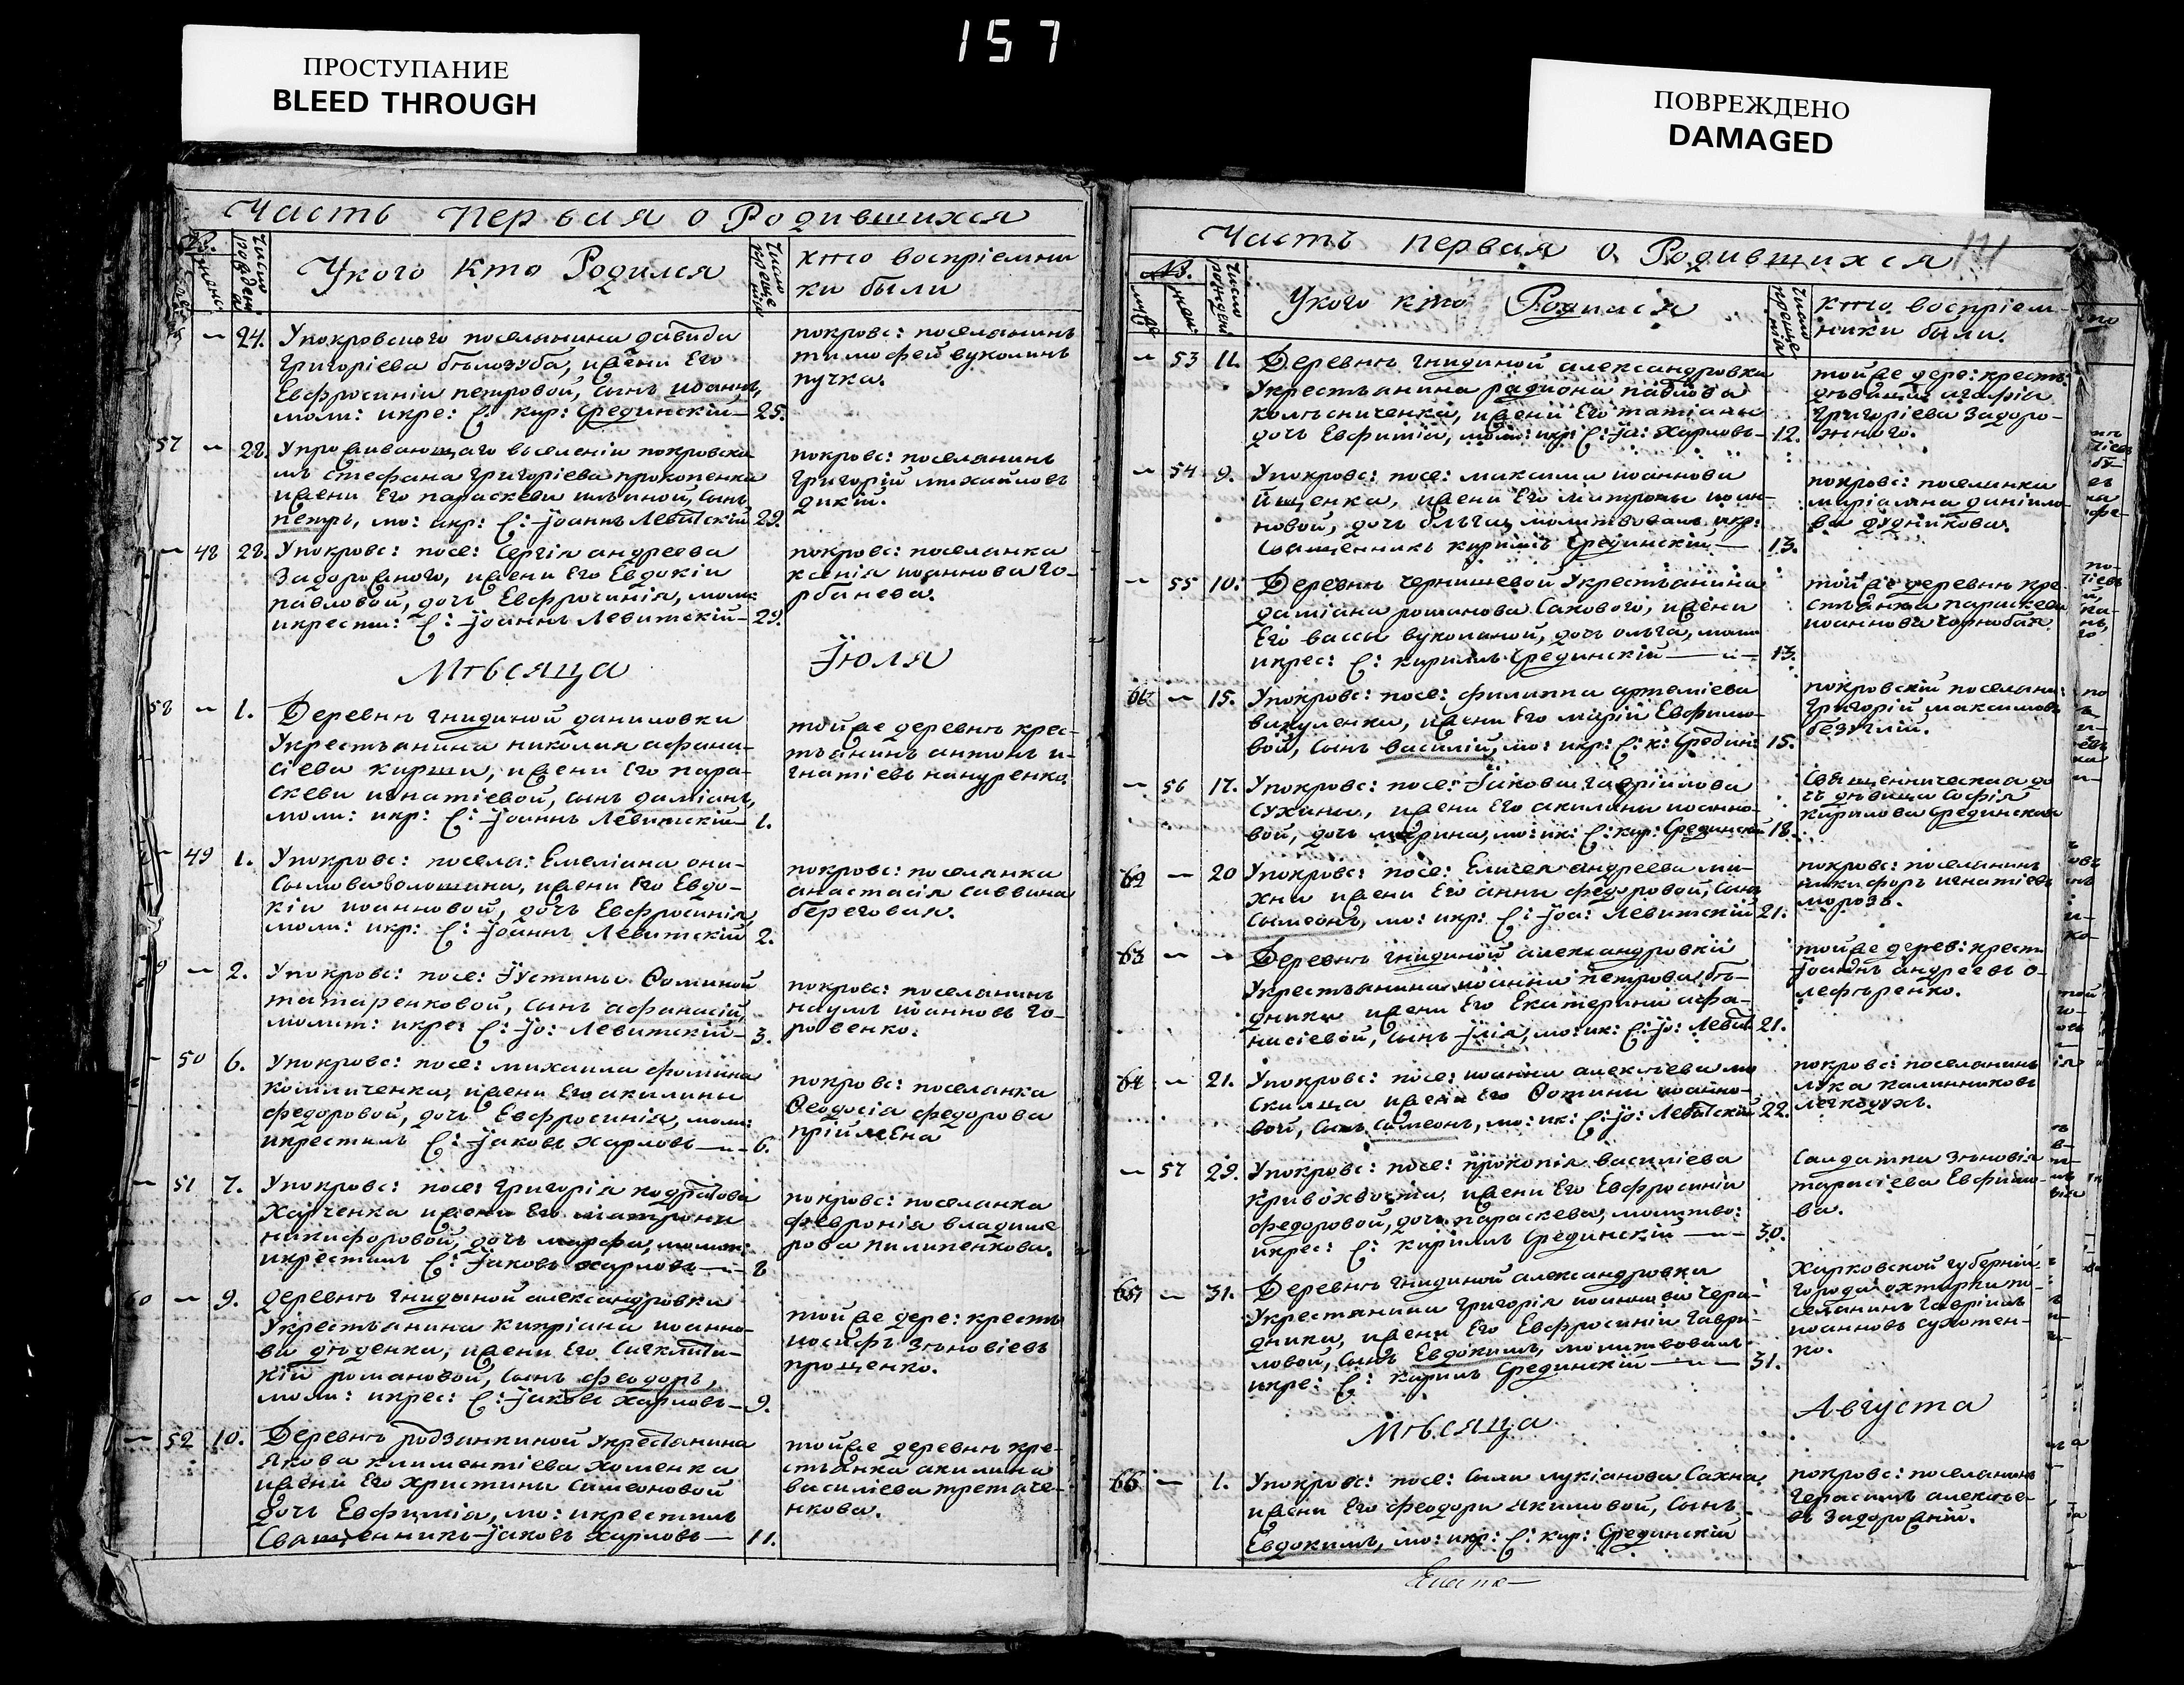 157
ПРОСТУПАНИЕ
BLEED THROUGH
ПОВРЕЖДЕНО
DAMAGED
Часть Первая о Родившихся
Укого Кто Родился
кто воспріемни
ки были
— 24. Упокровского поселянина давида
Григоріева бѣлозуба, ижени Его
Евфросиніи петровой, сынъ иоаннъ,
моли: икре: С: кир: Срединскій — 25.
покровс: поселянинъ
тимофей вуколинъ
пучка.
57 — 28. Упроживающаго вѣселеніи покровско
мъ стефана григоріева прокопенка
ижени Его параскеви ильиной, сынъ
петръ, мо: икр: С: Іоаннъ Левитскій 29.
покровс: поселянинъ
Григорій михайловъ
дикій.
— 48 28. Упокровс: посе: Сергія андреева
Задорожного, ижени Его Евдокіи
павловой, дочь Евфросинія, моли:
икрести: С: Іоаннъ Левитскій — 29.
покровс: поселянка
ксенія иоаннова го-
рбанева.
Мѣсяца Іюля
58 — 1. Деревнѣ гнидиной даниловки
Укрестьянина николая афана-
сіева кирши, ижени Его пара-
скеви игнатіевой, сынъ даміанъ,
моли: икр: С: Іоаннъ Левитскій 1.
тойже деревнѣ крес-
тьянинъ антонъ и-
гнатіевъ
— 49 1. Упокровс: посела: Емеліана они-
симова волошина, ижени Его Евдо-
кіи иоанновой, дочь Евфросинія,
моли: икр: С: Іоаннъ Левитскій 2.
покровс: поселянка
анастасія саввина
береговая.
— 2. Упокровс: посе: Іустины Фоминой
татаренковой, сынъ афанасій,
молит: икре: С: Іо: Левитскій — 3.
покровс: поселянинъ
наумъ иоанновъ го-
ровенко.
— 50 6. Упокровс: посе: михаила фомина
ижени Его акилины
федоровой, дочь Евфросинія, моли:
икрестилъ С: Іаковъ Харловъ — 6.
покровс: поселянка
Феодосія федорова
пріймена
— 51 7. Упокровс: посе: григорія кодратова
Харченка ижени Его матрони
никифоровой, дочь марфа, молит:
икрестилъ С: Іаковъ Харловъ — 8
покровс: поселянка
февронія владими
рова пилипенкова.
60 — 9. Деревнѣ гнидиной александровки
Укрестьянина кипріана иоанно-
ва дѣденки, ижени Его Сигклити-
кіи романовой, сынъ феодоръ,
моли: икрес: С: Іаковъ Харловъ — 9.
тойже дере: кресть
иосифъ Зѣновіевъ
прощенко.
— 52 10. Деревнѣ родзянкиной Укрестянина
Якова климентіева Хоменка
ижени Его Христины Симеоновой
дочь Евфимія, мо: икрестилъ
Священникъ Іаковъ Харловъ — 11.
тойже деревнѣ кре-
стьянка акилина
василіева третяче-
нкова.
Часть первая о Родившихся
Укого кто Родился
кто воспріем-
ники были.
— 53 11. Деревнѣ гнидиной александровки
Укрестьянина радиона павлова
колѣсниченка, ижени Его татіаны
дочь Евфимія, моли: икр: С: Іа: Харловъ — 12.
тойже дере: кресть:
дѣвица агафія
Григоріева Задоро-
жного.
— 54 9. Упокровс: посе: максима иоаннова
ижени Его матроны иоан-
новой, дочь ольга, молитвовалъ икр:
Священникъ кириллъ Срединскій — 13.
покровс: поселянка
маріамна даніило-
ва дудникова.
— 55 10. Деревнѣ чернишевой Укрестьянина
даміана романова Сакового, ижени
Его вассы вуколиной, дочь ольга, моли
икрес: С: кириллъ Срединскій — 13.
тойже деревнѣ кре-
стьянка параскева
иоаннова чорнобая.
— 15. Упокровс: посе: филиппа артеміева
викуленка, ижени Его маріи Евфимо-
вой, сынъ василій, мо: икр: С: к: Средин: 15.
покровскій поселяни:
Григорій максимовъ
безуглій.
— 56 17. Упокровс: посе: Іакова гавріилова
Сухини, ижени Его акилини иоанно-
вой, дочь марина, мо: ик: С: кир: Срединскій 18.
Священническая до
чь дѣвица Софія
кирилова Срединская
62 — 20 Упокровс: посе: Елисея андреева ми-
хна ижени Его анны федоровой, сынъ
Сымеонъ, мо: икр: С: Іоа: Левитскій 21.
покровс: поселянинъ
никифоръ игнатіевъ
морозъ.
63 — — Деревнѣ гнидиной александровкій
Укрестьянина иоанна петрова бѣ-
дника ижени Его Екатерини афа-
нисіевой, сынъ Ілія, мо: ик: С: Іо: Левит 21.
тойже дерев: крест
Іоаннъ андреевъ о-
лефѣренко.
64 — 21. Упокровс: посе: иоанна алексіева мо
скальца ижени Его Фотини иоанно-
вой, сынъ Симеонъ, мо: ик: С: Іо: Левитскій 22.
покровс: поселянинъ
лука калинниковъ
легкодухъ.
— 57 29. Упокровс: посе: прокопія василіева
кривохвоста, ижени Его Евфросиніи
федоровой, дочь параскева, молитво:
икрес: С: кириллъ Срединскій — 30.
Салдатка Зѣновія
тарасіева Евфимо-
ва.
65 — 31. Деревнѣ гнидиной александровки
Укрестянина Григорія иоаннова чере-
дника, ижени Его Евфросиніи гаври-
ловой, сынъ Евдокимъ, молитвовалъ
икре: С: кирилъ Срединскій — 31.
Харковской губерніи
города охтирки по
селянинъ гавріилъ
иоанновъ сухотен-
ко.
Мѣсяца Августа
66 — 1. Упокровс: посе: Сили лукіанова Сахна,
ижени Его феодори Якимовой, сынъ
Евдокимъ, мо: икр: С: кир: Срединскій
покровс: поселянинъ
Герасимъ алексѣе-
въ Задорожній.